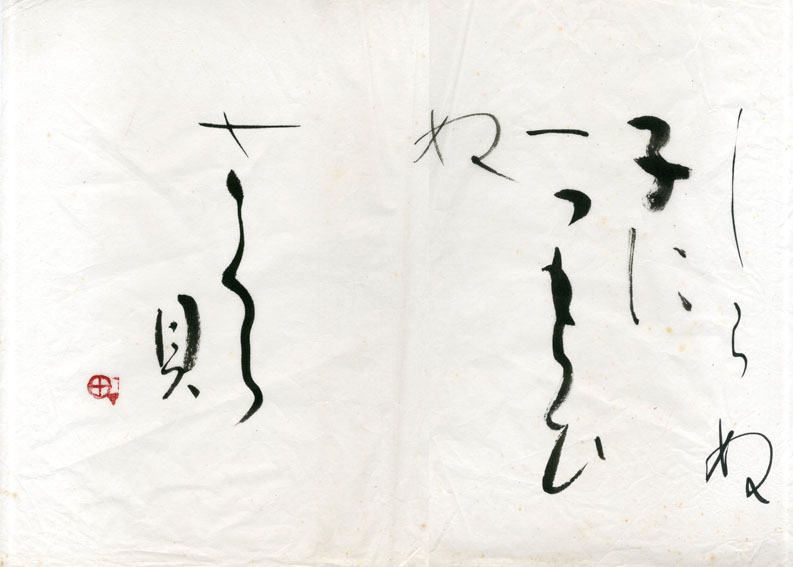 しらぬ
子に
一つもらひ
ぬ
さくら
貝